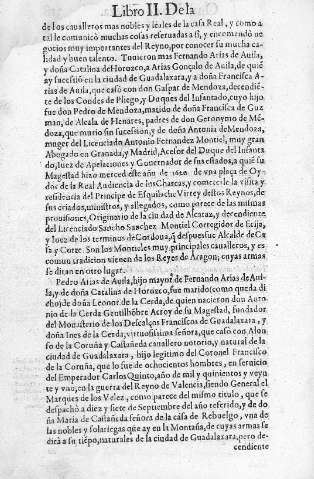 Libro II. De la
de los caualleros mas nobles y leales de la casa Real, y como a
tal le comunicò muchas cosas reseruadas a si, y encomendò ne
gocios muy importantes del Reyno, por conocer su mucha ca-
lidad y buen talento. Tuuieron mas Fernando Arias de Auila,
y doña Catalina del Horozco, a Arias Gonçalo de Auila, de quiẽ
ay sucession en la ciudad de Guadalaxara, y a doña Francisca A-
rias de Auila, que casò con don Gaspar de Mendoza, decendiẽ
te de los Condes de Pliego, y Duques del Infantado, cuyo hijo
fue don Pedro de Mendoza, marido de doña Francisca de Guz
man, de Alcala de Henares, padres de don Geronymo de Mẽ-
doza, que murio sin sucession, y de doña Antonia de Mendoza,
muger del Licenciado Antonio Fernandez Montiel, muy gran
Abogado en Granada, y Madrid, Acessor del Duque del Infanta
do, Iuez de Apelaciones y Gouernador de sus estados, a quiẽ su
Magestad hizo merced este año de de vna plaça de Oy-
dor de la Real Audiencia de los Charcas, y comete le la visita y
residencia del Principe de Esquilache Virrey destos Reynos, de
sus criados, ministros, y allegados, como parece de las mismas
prouisiones, Originario de la ciudad de Alcaraz, y decendiente
del Licenciado Sancho Sanchez Montiel Corregidor de Ecija,
y Iuez de los terminos de Cordoua, q̃ despues fue Alcalde de Ca
sa y Corte. Son los Montieles muy principales caualleros, y es
comun tradicion vienen de los Reyes de Aragon; cuyas armas
se diran en otro lugar.
Pedro Arias de Auila, hijo mayor de Fernando Arias de Aui-
la, y de doña Catalina de Horozco, fue marido (como queda di
cho) de doña Leonor de la Cerda, de quien nacieron don Auto
nio de la Cerda Gentilhõbre Acroy de su Magestad, fundador
del Monasterio de los Descalços Franciscos de Guadalaxara, y
doña Ines de la Cerda, virtuosissima señora, que casò con Alon-
so de la Coruña y Castañeda cauallero notorio, y natural de la
ciudad de Guadalaxara, hijo legitimo del Coronel Francisco
de la Coruña, que lo fue de ochocientos hombres, en seruicio
del Emperador Carlos Quinto, año de mil y quinientos y veyn
te y vno, en la guerra del Reyno de Valencia, siendo General el
Marques de los Velez, como parece del mismo titulo, que se
despachò a diez y siete de Septiembre del año referido, y de do
ña Maria de Castañeda señora de la casa de Rebuelgo, vna de
las nobles y solariegas que ay en la Montaña, de cuyas armas se
dirà a su tiẽpo, naturales de la ciudad de Guadalaxara, pero de-
cendiente